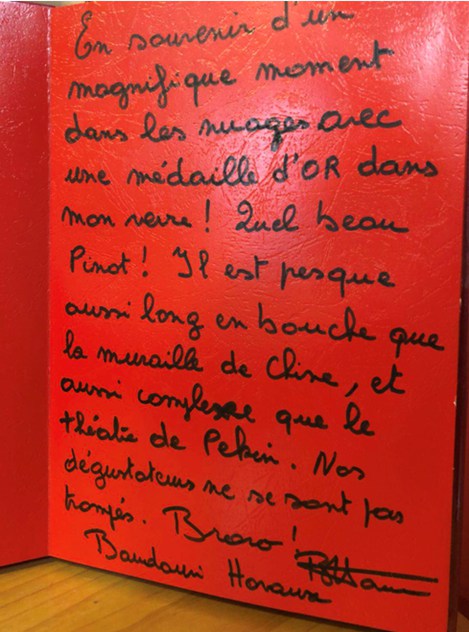 En souvenir d'un
magnifique moment
dans les nuages avec
une médaille d'OR dans
mon verre ! Quel beau
Pinot ! Il est presque
aussi long en bouche que
la muraille de Chine, et
aussi complexe que le
théatre de Pekin. Nos
dégustateurs ne se sont pas
trompés. Bravo !
Baudouin